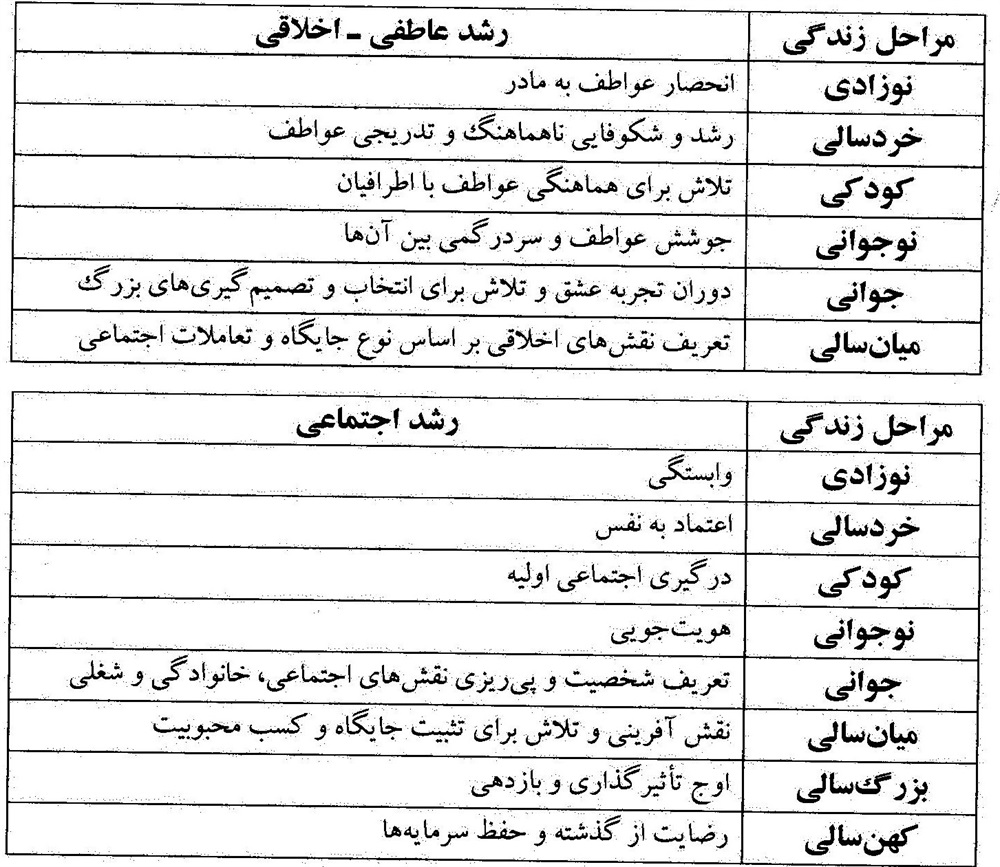 مراحل زندگی رشد عاطفی ـ اخلاقی
نوزادی انحصار عواطف به مادر
خردسالی رشد و شکوفایی ناهماهنگ و تدریجی عواطف
کودکی تلاش برای هماهنگی عواطف با اطرافیان
نوجوانی جوشش عواطف و سردرگمی بین آن‌ها
جوانی دوران تجربه عشق و تلاش برای انتخاب و تصمیم‌گیری‌های بزرگ
میان‌سالی تعریف نقش‌های اخلاقی بر اساس نوع جایگاه و تعاملات اجتماعی
مراحل زندگی رشد اجتماعی
نوزادی وابستگی
خردسالی اعتماد به نفس
کودکی درگیری اجتماعی اولیه
نوجوانی هویت‌جویی
جوانی تعریف شخصیت و پی‌ریزی نقش‌های اجتماعی، خانوادگی و شغلی
میان‌سالی نقش آفرینی و تلاش برای تثبیت جایگاه و کسب محبوبیت
بزرگ‌سالی اوج تأثیرگذاری و بازدهی
کهن‌سالی رضایت از گذشته و حفظ سرمایه‌ها